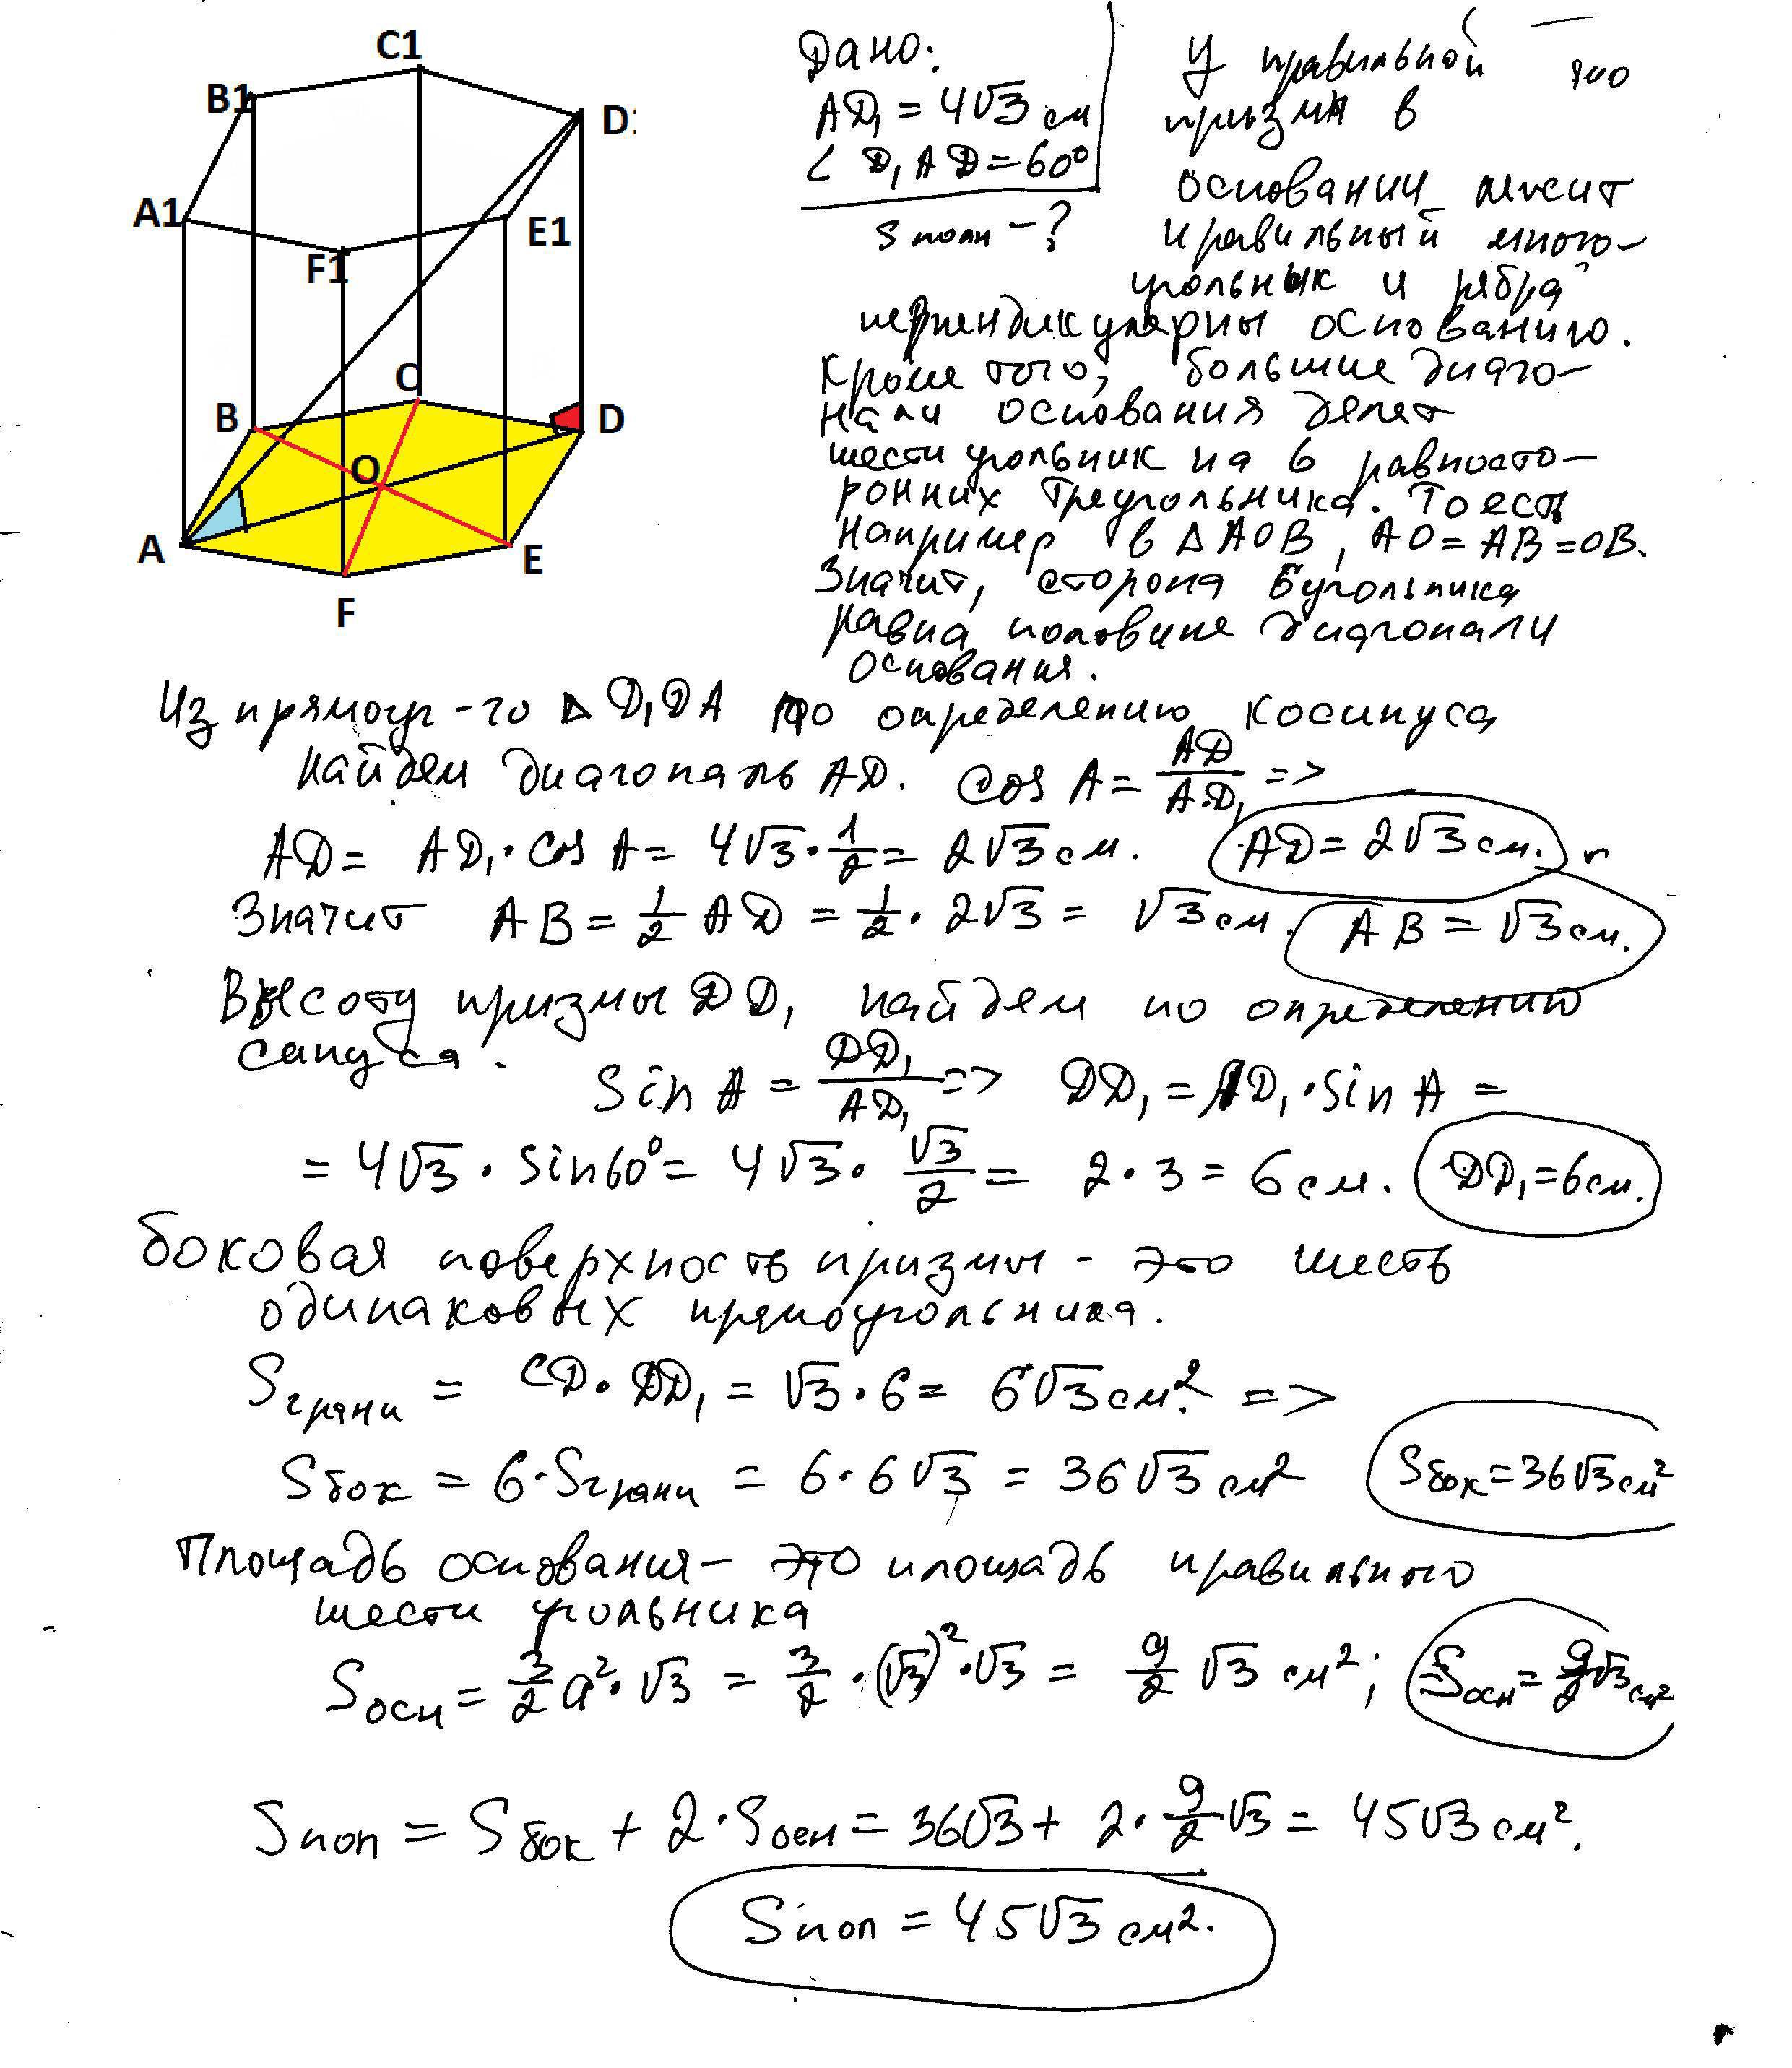 C1
B1
D1
A1
E1
F1
C
B
D
O
A
E
F
Дано:
AD₁ = 4√3 см
∠ D₁AD = 60°
S полн - ?
У правильной
призмы в
основании лежит
правильный много-
угольник и рёбра
перпендикулярны основанию.
Кроме того, большие диаго-
нали основания делят
шестиугольник на 6 равносто-
ронних треугольника. То есть
Например в △ AOB, AO = AB = OB.
Значит, сторона 6угольника
равна половине диагонали
основания.
Из прямоуг-го △ D₁DA по определению косинуса
найдем диагональ AD. cos A = AD/AD₁ =>
AD = AD₁ · cos A = 4√3 · 1/2 = 2√3 см. AD = 2√3 см.
Значит AB = 1/2 AD = 1/2 · 2√3 = √3 см. AB = √3 см.
Высоту призмы DD₁ найдем по определению
синуса. Sin A = DD₁/AD₁ => DD₁ = AD₁ · sin A =
= 4√3 · Sin60° = 4√3 · √3/2 = 2 · 3 = 6 см. DD₁ = 6 см.
боковая поверхность призмы - это шесть
одинаковых прямоугольника.
S грани = CD · DD₁ = √3 · 6 = 6√3 см². =>
S бок = 6 · S грани = 6 · 6√3 = 36√3 см² S бок = 36√3 см²
Площадь основания - это площадь правильного
шестиугольника
S осн = 3/2 a² · √3 = 3/2 · (√3)² · √3 = 9/2 √3 см²; S осн = 9/2 √3 см²
S пол = S бок + 2 · S осн = 36√3 + 2 · 9/2 √3 = 45√3 см².
S пол = 45√3 см².